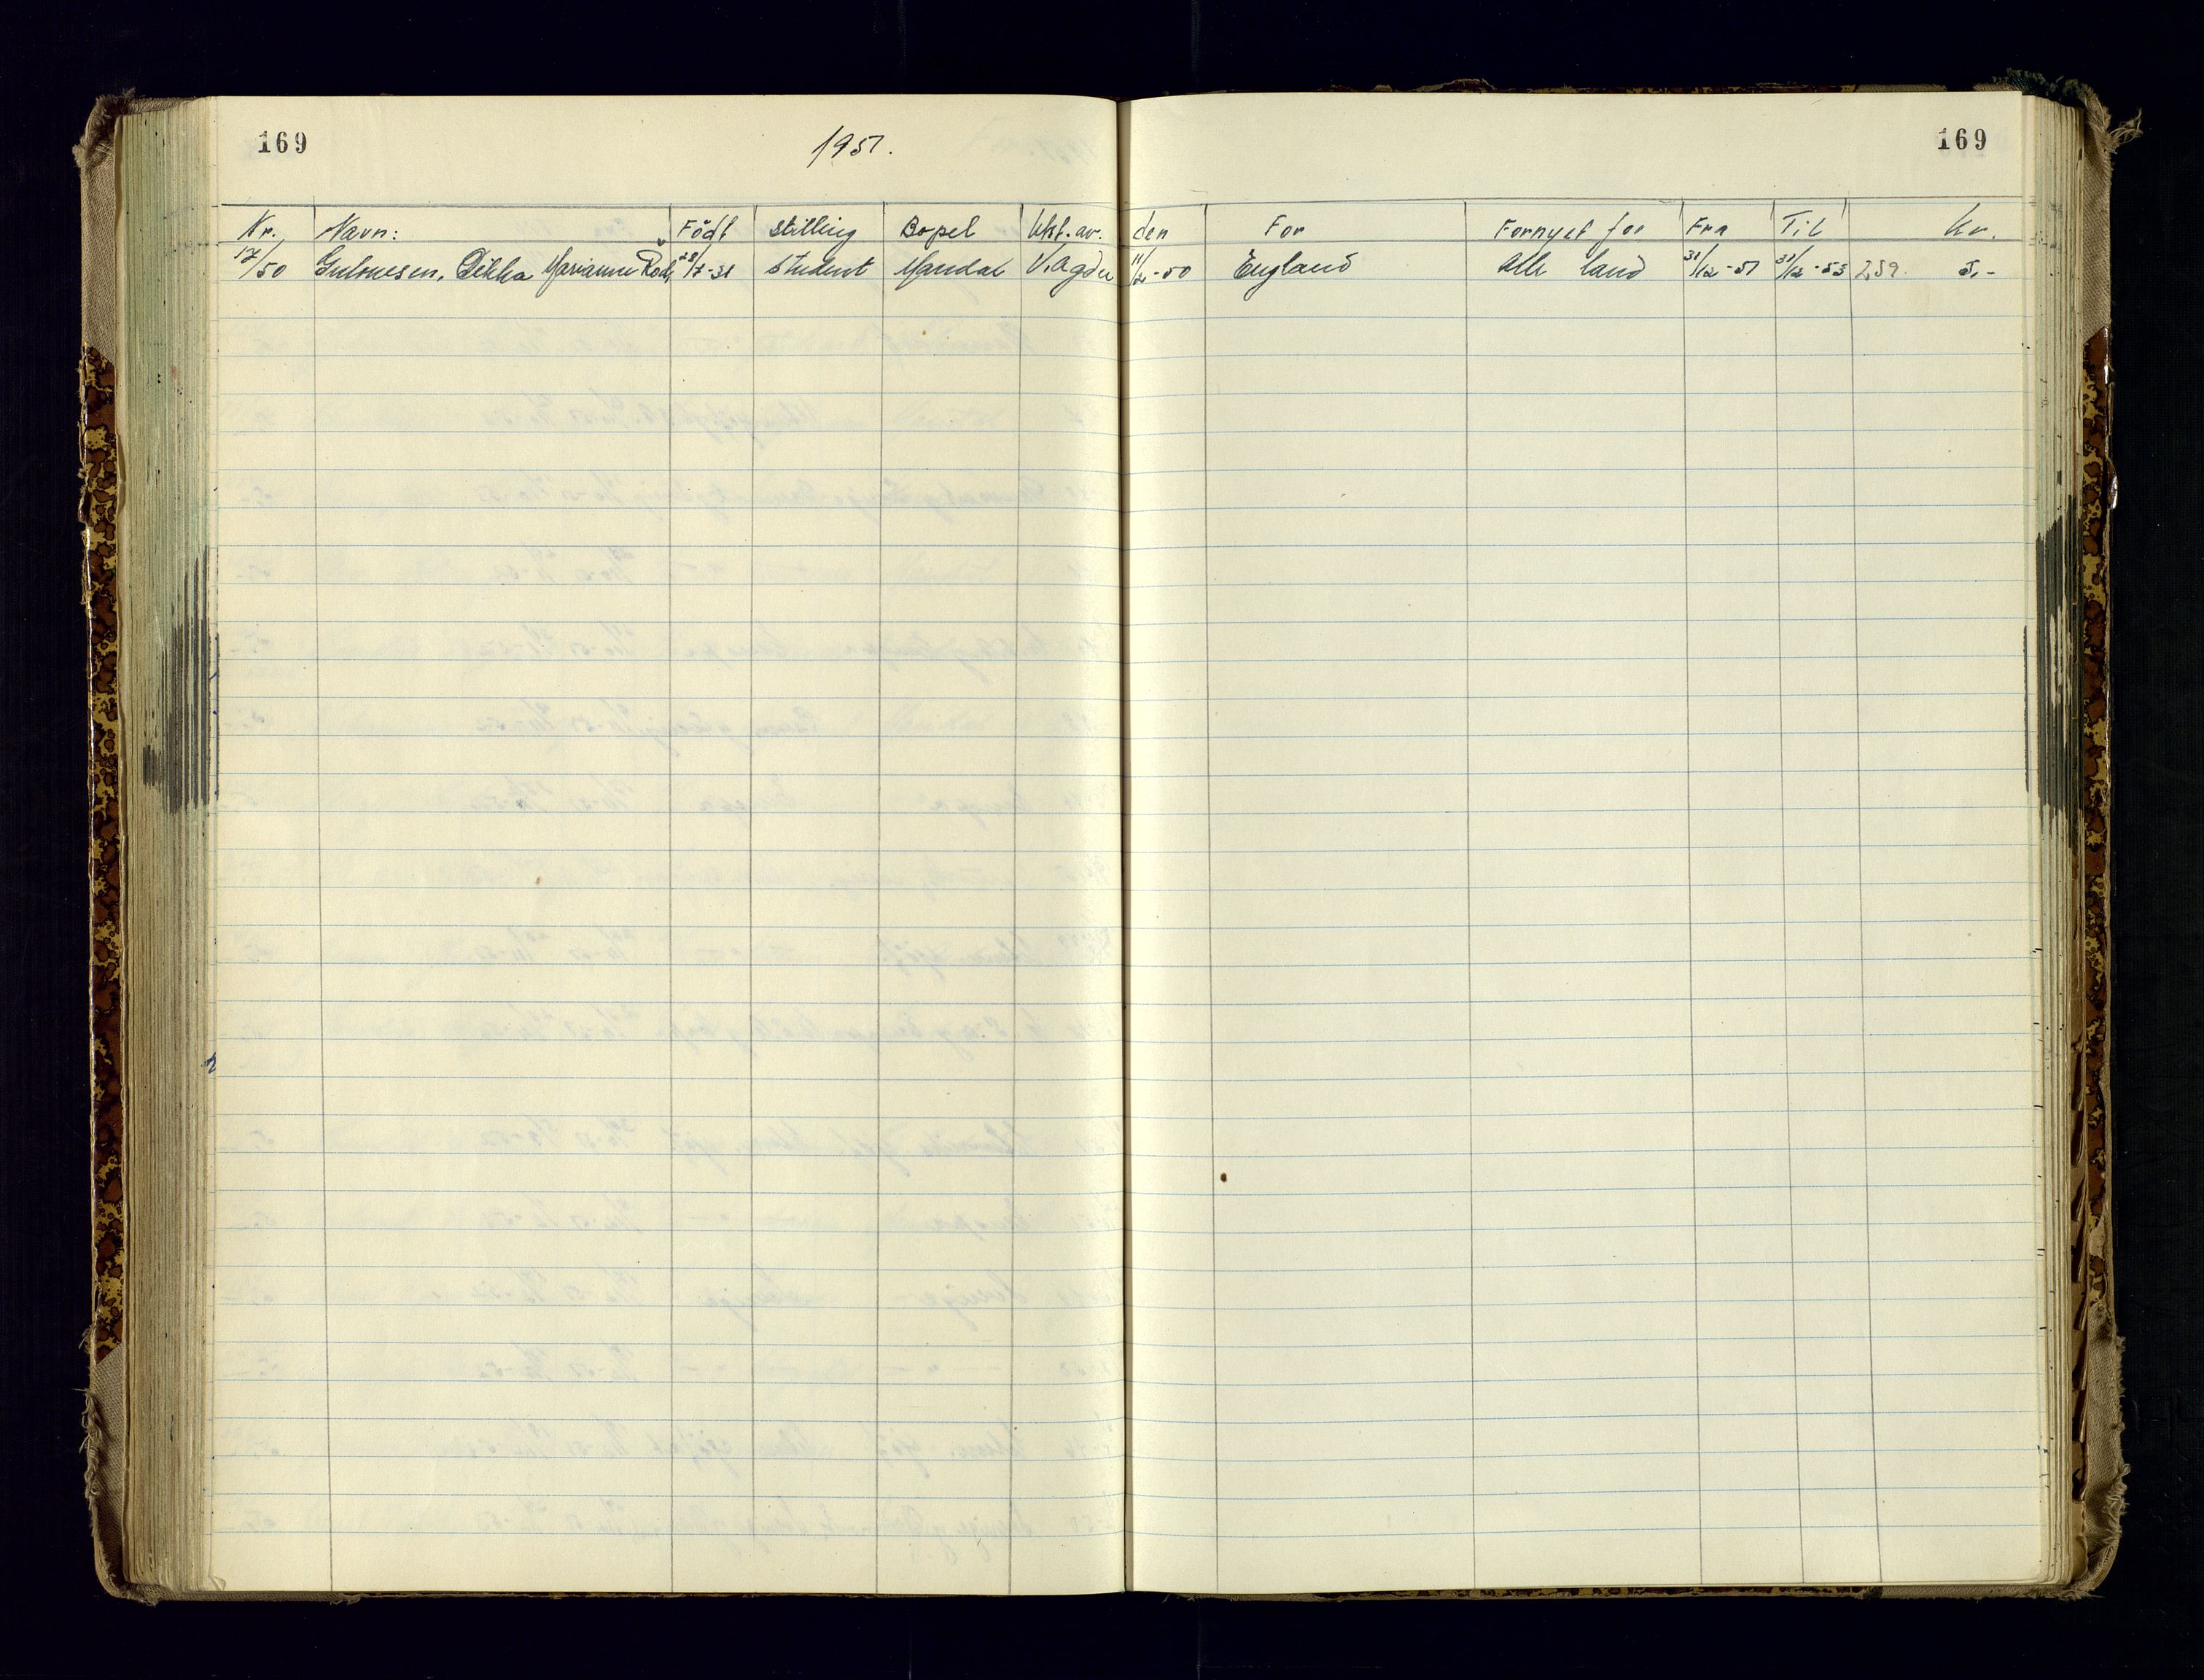 169 1951. 169
Nr. Navn: Född Stilling Bopel Utst. av. den For Fornyet for Fra Til Kr.
17/50 Gulovesen, Dikka Marianne 28/7-31 Student Mandal V. Agder 11/2-50 England Alle land 31/12-51 31/12-53 259. 5,-